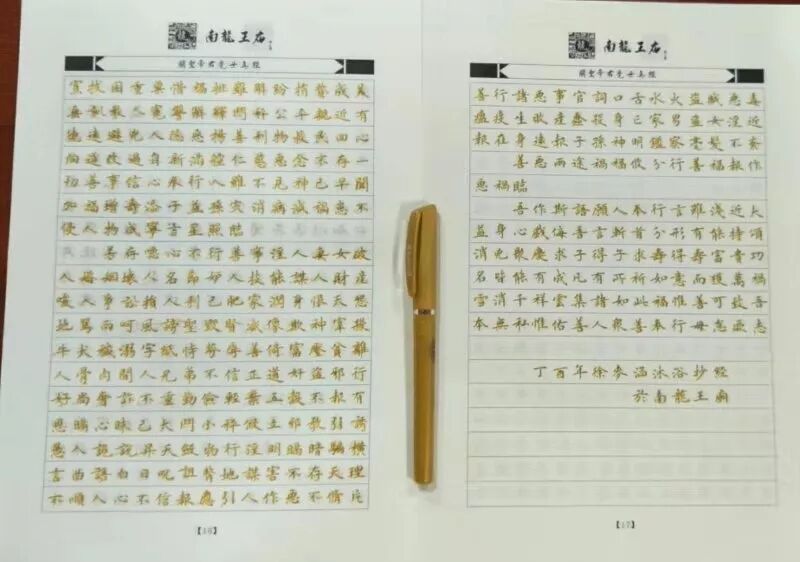 南龍王庙
關聖帝君覺世真經
重粟惜福排難解紛捐貲成美
垂訓教人冤讐解釋鬥秤公平親近有
德遠避凶人隱惡揚善利物救民回心
向道改過自新滿腔仁慈惡念不存一
切善事信心奉行人雖不見神已早聞
加福增壽添子益孫災消病減禍患不
侵人物咸寧吉星照臨
若存惡心不行善事淫人妻女破
人婚姻壞人名節妒人技能謀人財產
唆人爭訟損人利己肥家潤身恨天怨
地罵雨呵風謗聖毀賢滅像欺神宰殺
牛犬穢溺字紙恃勢辱善倚富壓貧離
人骨肉間人兄弟不信正道奸盜邪行
好尚奢詐不重勤儉輕棄五穀不報有
恩瞞心昧己大鬥小秤假立邪教引誘
愚人詭說昇天斂物行淫明瞞暗騙橫
言曲語白日咒詛背地謀害不存天理
不順人心不信報應引人作惡不脩片
【16】
南龍王庙
關聖帝君覺世真經
善行諸惡事官詞口舌水火盜賊惡毒
瘟疫生敗產蠢殺身亡家男盜女淫近
報在身遠報子孫神明鑑察毫髮不紊
善惡兩途禍福攸分行善福報作
惡禍臨
吾作斯語願人奉行言雖淺近大
益身心戲侮吾言斬首分形有能持頌
消凶聚慶求子得子求壽得壽富貴功
名皆能有成凡有所祈如意而獲萬禍
雪消千祥雲集諸如此福惟善可致吾
本無私惟佑善人眾善奉行毋怠厥志
丁酉年徐孝涵沐浴抄經
於南龍王廟
【17】